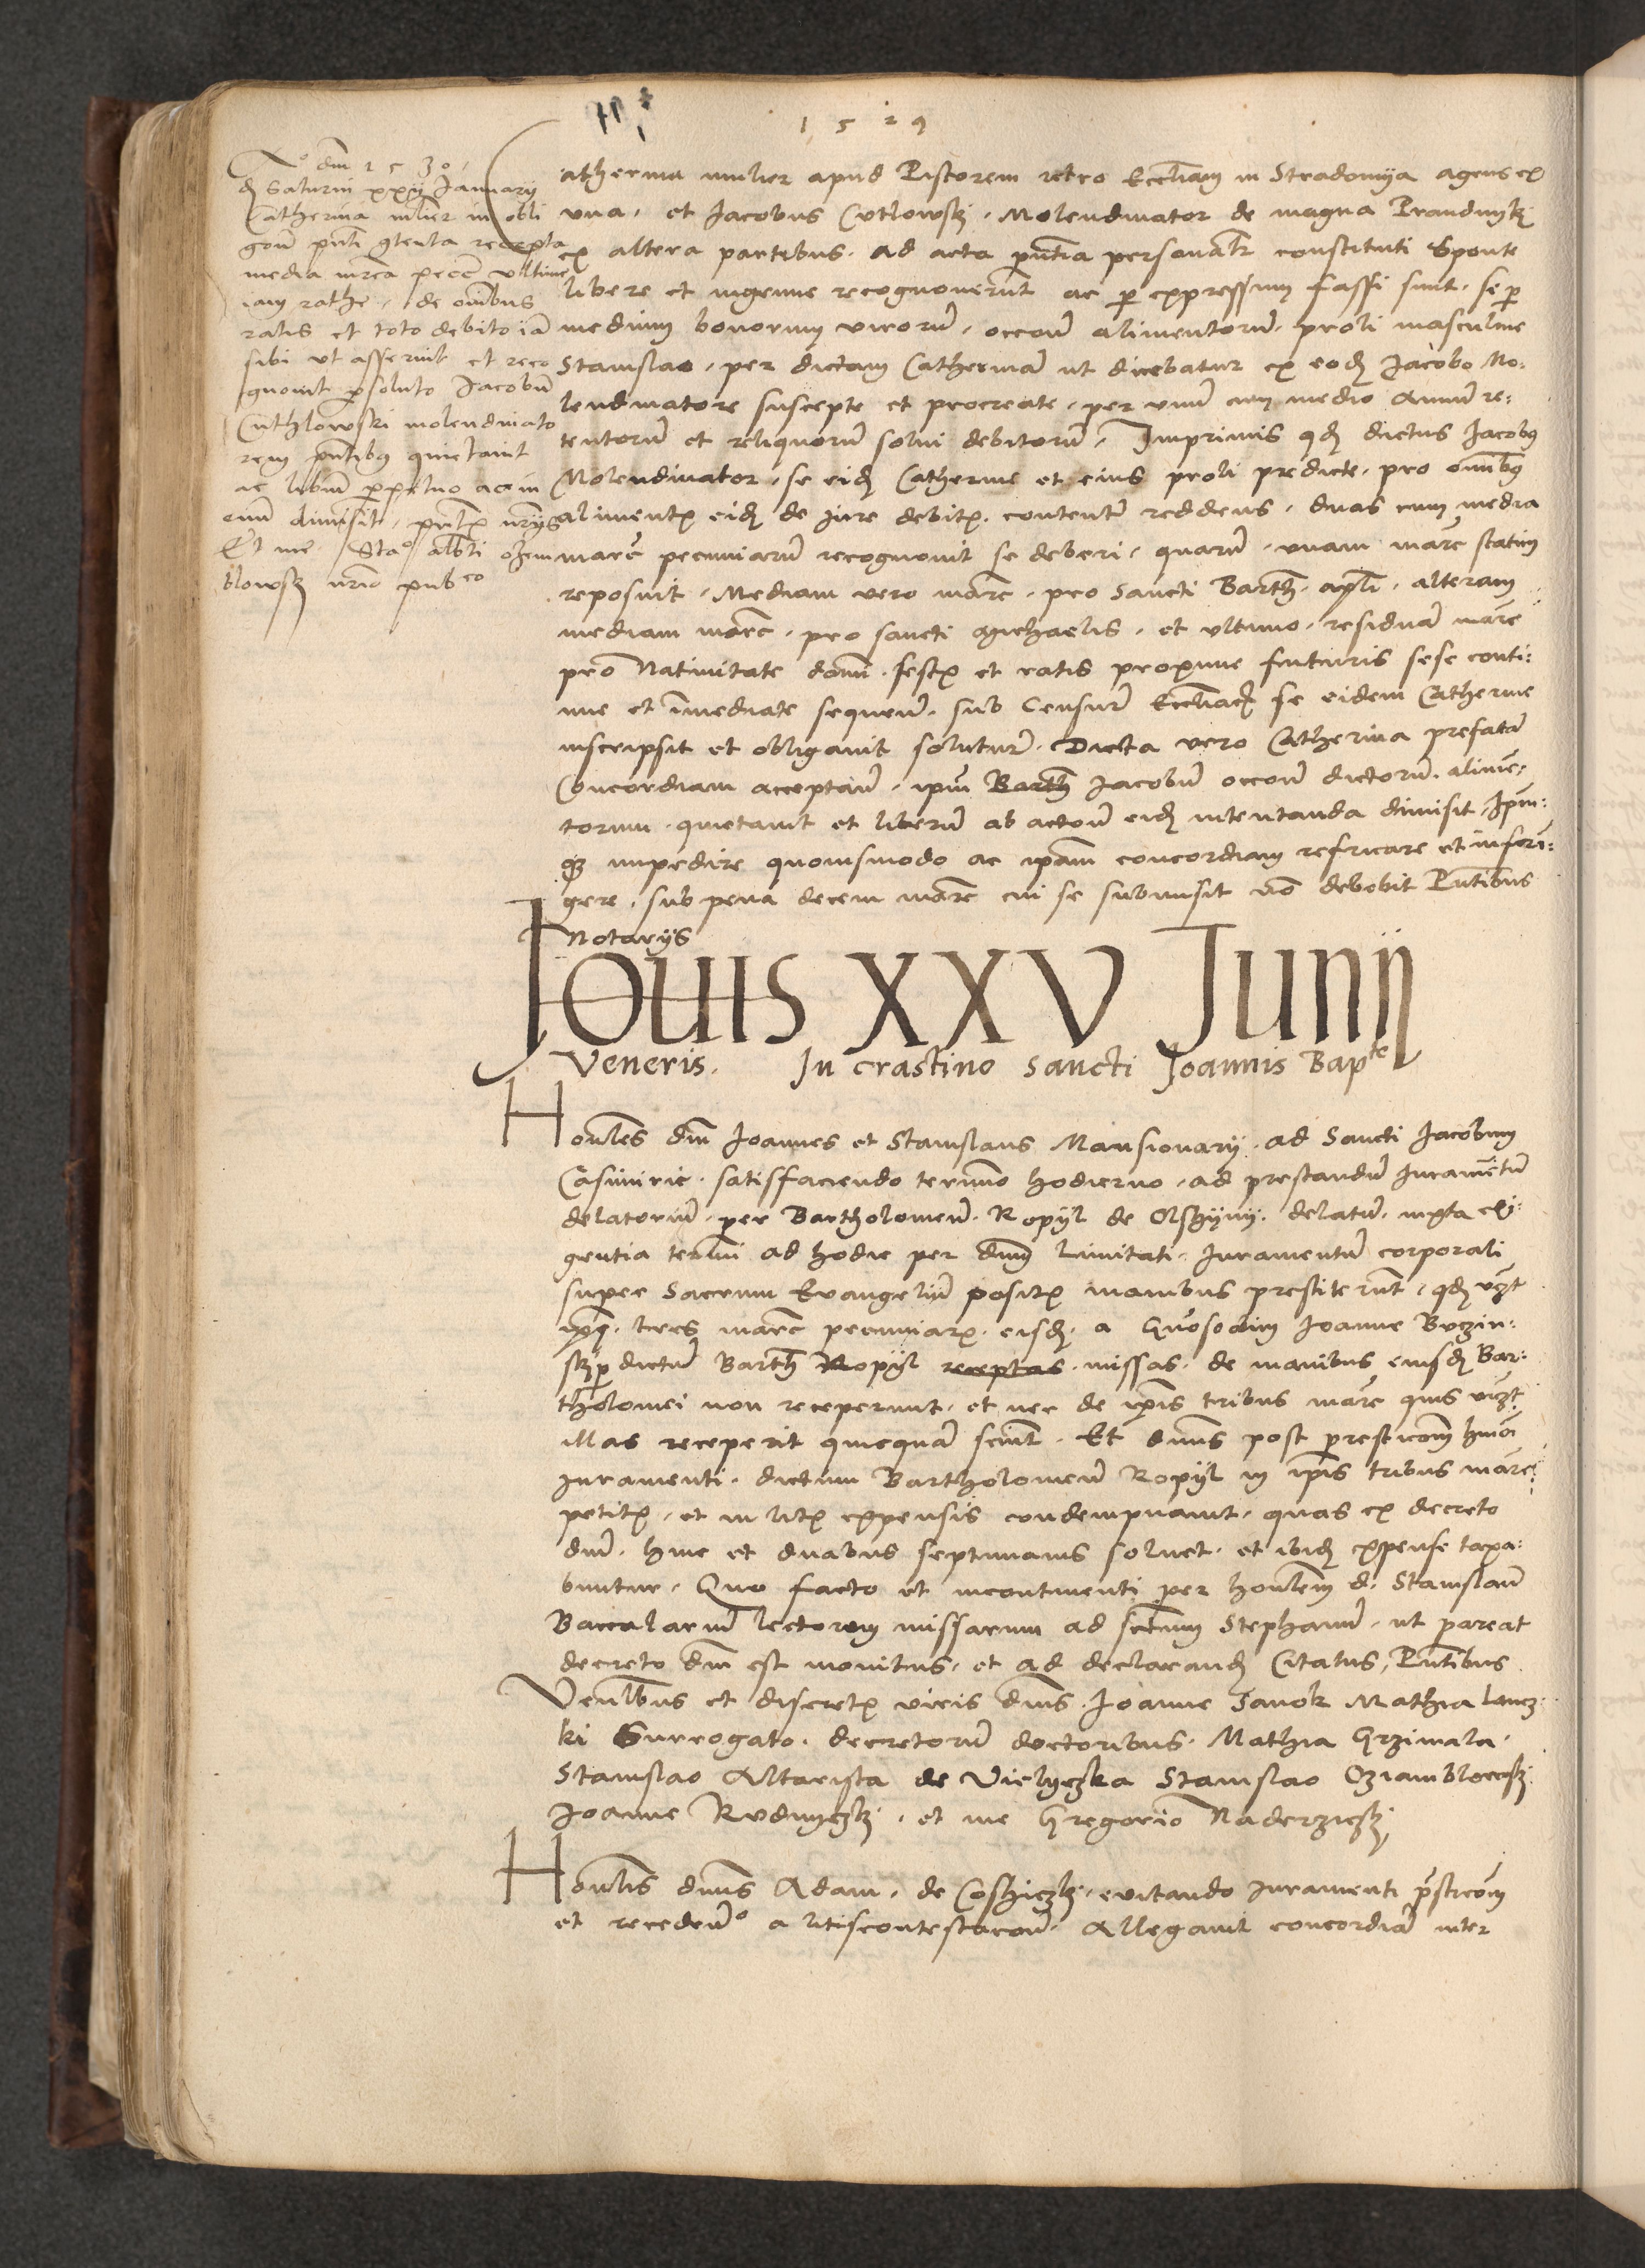 1529
Aº dni 1530
d Saturni xxij Januarij
Catherina mulier in obli
gon pnti gtenta recepta
media mrca pecc ultime
iam rathe, de omibus
ratis et toto debito iam
sibi ut asseruit et reco
gnouit psoluto Jacobum
Cuthlowski molendinato
rem pntibus quietauit
ac liberum ppetuo ac in
euum dimisit, pntibus nrijs
Et me Staº alberti ozem
blowsk nrio pubco
Catherina mulier apud Pistorem retro Eccliam in Stradomija agens ex
vna, et Jacobus Cutlowskj, Molendinator de magna Prandnykj
ex altera partibus, ad acta pntia personaliter constituti Sponte
libere et ingenue recognouerunt ac per expressum fassi sunt, se per
medium bonorum virorum, occone alimentorum, proli masculine
Stanislao, per dictam Catherinam ut dicebatur ex eodem Jacobo Mo:
lendinatore suscepte et procreate, per vnum cum medio Annum re:
tentorum et reliquorum solui debitorum, Imprimis quod dictus Jacobus
Molendinator, se eidem Catherine et eius proli predicte, pro omibus
alimentis eidem de iure debitis, contentum reddens, duas cum media
marc pecuniarum recognouit se deberi, quarum vnam marc statim
reposuit, Mediam vero marc, pro Sancti Barth. apli, alteram
mediam marc, pro sancti Michaelis, et vltimo, residuam marc
pro Natiuitate domi, festis et ratis proxime futuris sese conti:
nue et imediate sequen, sub Censuris Eccliacis se eidem Catherine
inscripsit et obligauit soluturum. Dicta vero Catherina prefatam
Concordiam acceptans, ipm Barth Jacobum occone dictorum alimen:
torum quietauit et liberum ab actone eidem intentanda dimisit, Ipm:
que impedire quouismodo ac ipam concordiam refricare et infrin:
gere, sub pena decem marc cui se submisit non debebit Pntibus
Notarijs
Jouis XXV Junij
Veneris. In crastino Sancti Joannis Bapte
Honles dni Joannes et Stanislaus Mansionarij, ad Sancti Jacobum
Casimirie, satisfaciendo termino hodierno, ad prestandum Juramentum
delatorium, per Bartholomeum Ropyl de Olschyny, delatum, iuxta exi:
gentia termini ad hodie per dnum limitati, Juramentum corporali
super Sacrum Euangelium positis manibus prestiterunt, quod vizt
ipi tres marc pecuniarum, eisdem, a Gnoso olim Joanne Buczin:
sky per dictum Barth Ropyl receptas missas, de manibus eiusdem Bar:
tholomei non receperunt, et nec de ipis tribus marc quis vizt
illas receperit quicquam sciunt. Et dnus post prestitonem hmoi
Juramenti, dictum Bartholomeum Ropyl in ipis tribus marc
petitis, et in litis expensis condempnauit, quas ex decreto
dni, hinc et duabus septimanis soluet, et ibidem expense taxa:
buntur. Quo facto et incontinenti per honlem d. Stanislaum
Baccalarium lectorem missarum ad sctum Stephanum, ut pareat
decreto dni est monitus, et ad declarandum Citatus, Pntibus
Venlibus et discretis viris dnis Joanne Sanok Mathia lencz
ki Surrogato, decretorum doctoribus, Mathia Grzimala,
Stanislao Altarista de Vielyczka Stanislao Oziamblowskj
Joanne Rudnyczkj, et me Gregorio Naderziczkj
Honlis dnus Adam, de Coschiczkj, euitando Juramenti prestitonem
et recedendo a litiscontestacone, Allegauit concordiam inter